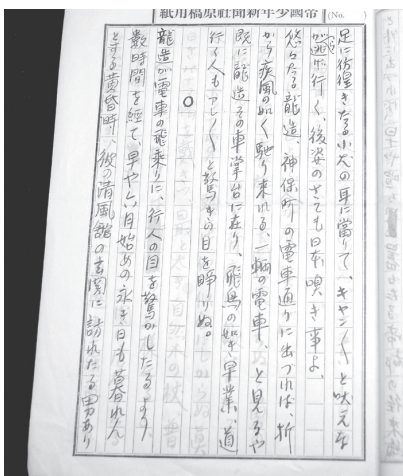 帝國少年新聞社原稿用紙 (No.
足に彷徨きたる小犬の耳に當りて、キャン〳〵と吠えな
がら逃げ行く、後姿のさても日本嘆き事よ、
悠々たる龍造、神保町の電車通りに出づれば、折
から疾風の如く馳り来れる、一輌の電車、と見るや
既に龍造その車掌台に在り、飛鳥の如き早業、道
行く人もアレ〳〵と驚きの目を睜りぬ。
○
龍造が電車の飛乗りに、行人の目を驚かしたるより
数時間を経て、早や 月始めの永き日も暮れん
とする黄昏時、彼の清風館の玄関に訪れたる男あり